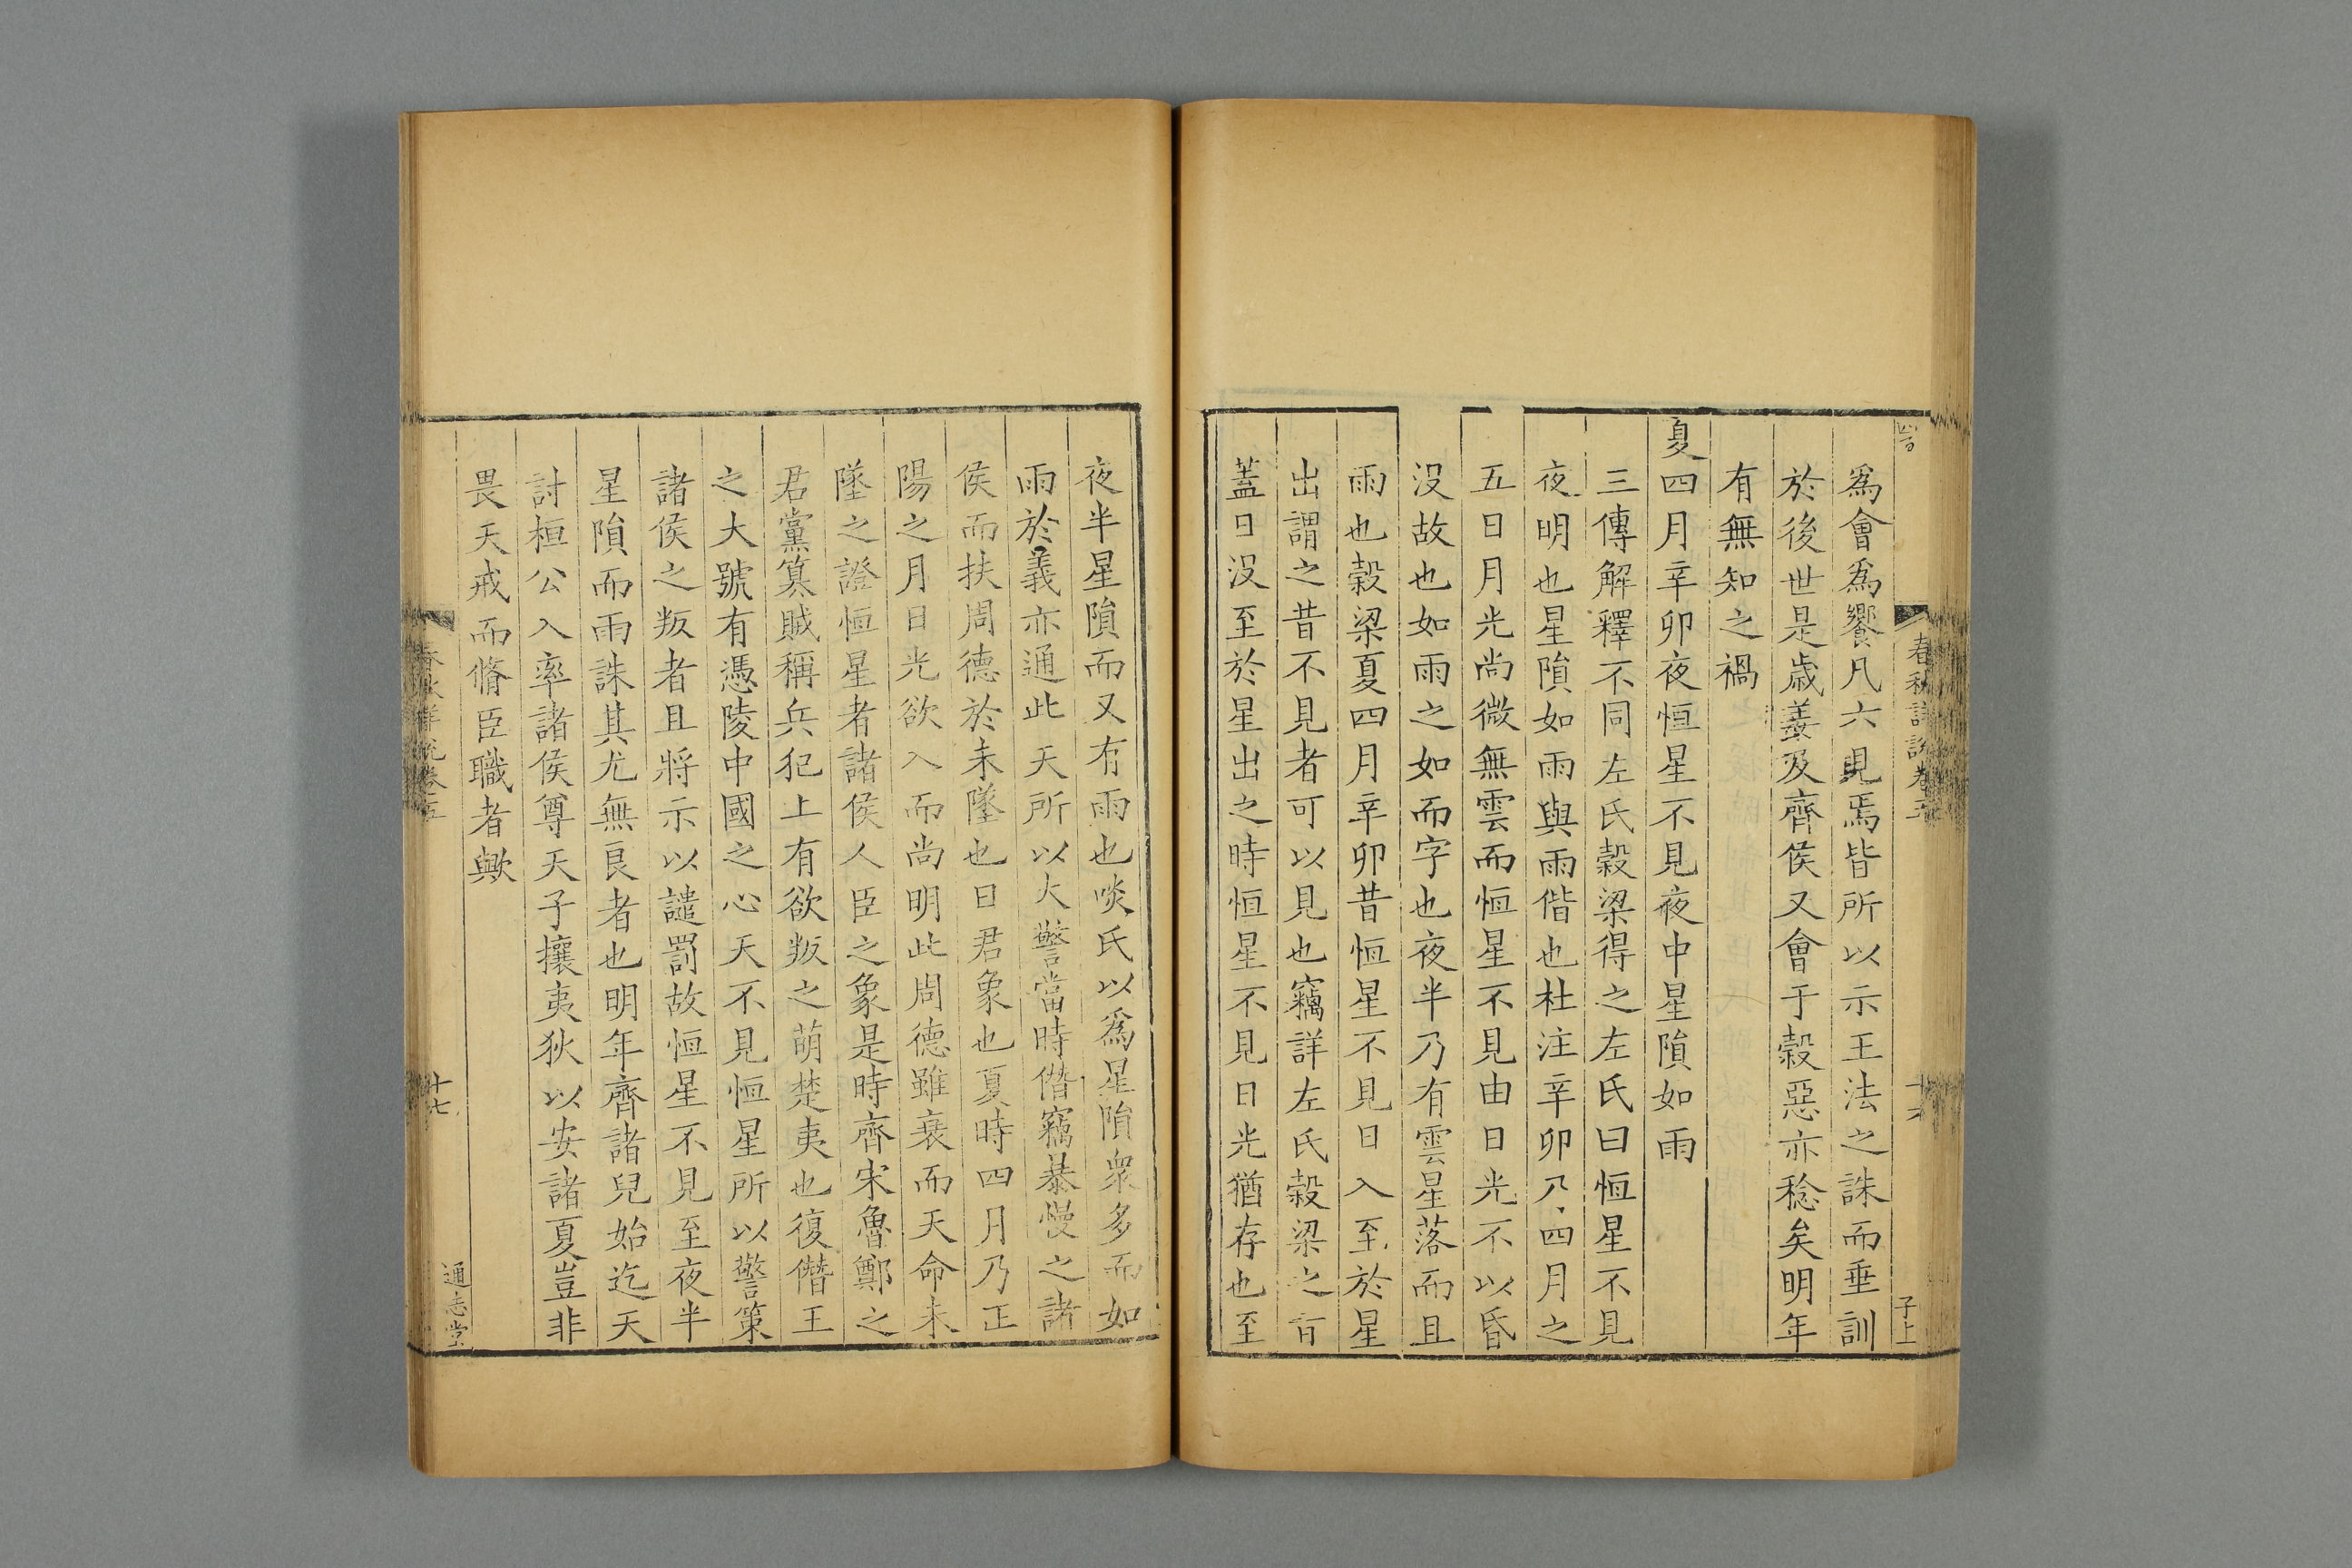 爲會爲饗凡六見焉皆所以示王法之誅而垂訓
於後世是歲姜及齊侯又會于穀惡亦稔矣明年
有無知之禍
夏四月辛卯夜恒星不見夜中星隕如雨
三傳解釋不同左氏穀梁得之左氏曰恒星不見
夜明也星隕如雨與雨偕也杜注辛卯乃四月之
五日月光尚微無雲而恒星不見由日光不以昏
沒故也如雨之如而字也夜半乃有雲星落而且
雨也穀梁夏四月辛卯昔恒星不見日入至於星
出謂之昔不見者可以見也竊詳左氏穀梁之言
蓋日沒至於星出之時恒星不見日光猶存也至
春秋詳說卷五
十六
子上
夜半星隕而又有雨也啖氏以爲星隕衆多而如
雨於義亦通此天所以大警當時僭竊暴慢之諸
侯而扶周德於未墜也日君象也夏時四月乃正
陽之月日光欲入而尚明此周德雖衰而天命未
墜之證恒星者諸侯人臣之象是時齊宋魯鄭之
君黨篡賊稱兵犯上有欲叛之萌楚夷也復僭王
之大號有憑陵中國之心天不見恒星所以警策
諸侯之叛者且將示以譴罰故恒星不見至夜半
星隕而雨誅其尤無良者也明年齊諸兒始迄天
討桓公入率諸侯尊天子攘夷狄以安諸夏豈非
畏天戒而脩臣職者歟
春秋詳說卷五
十七
通志堂